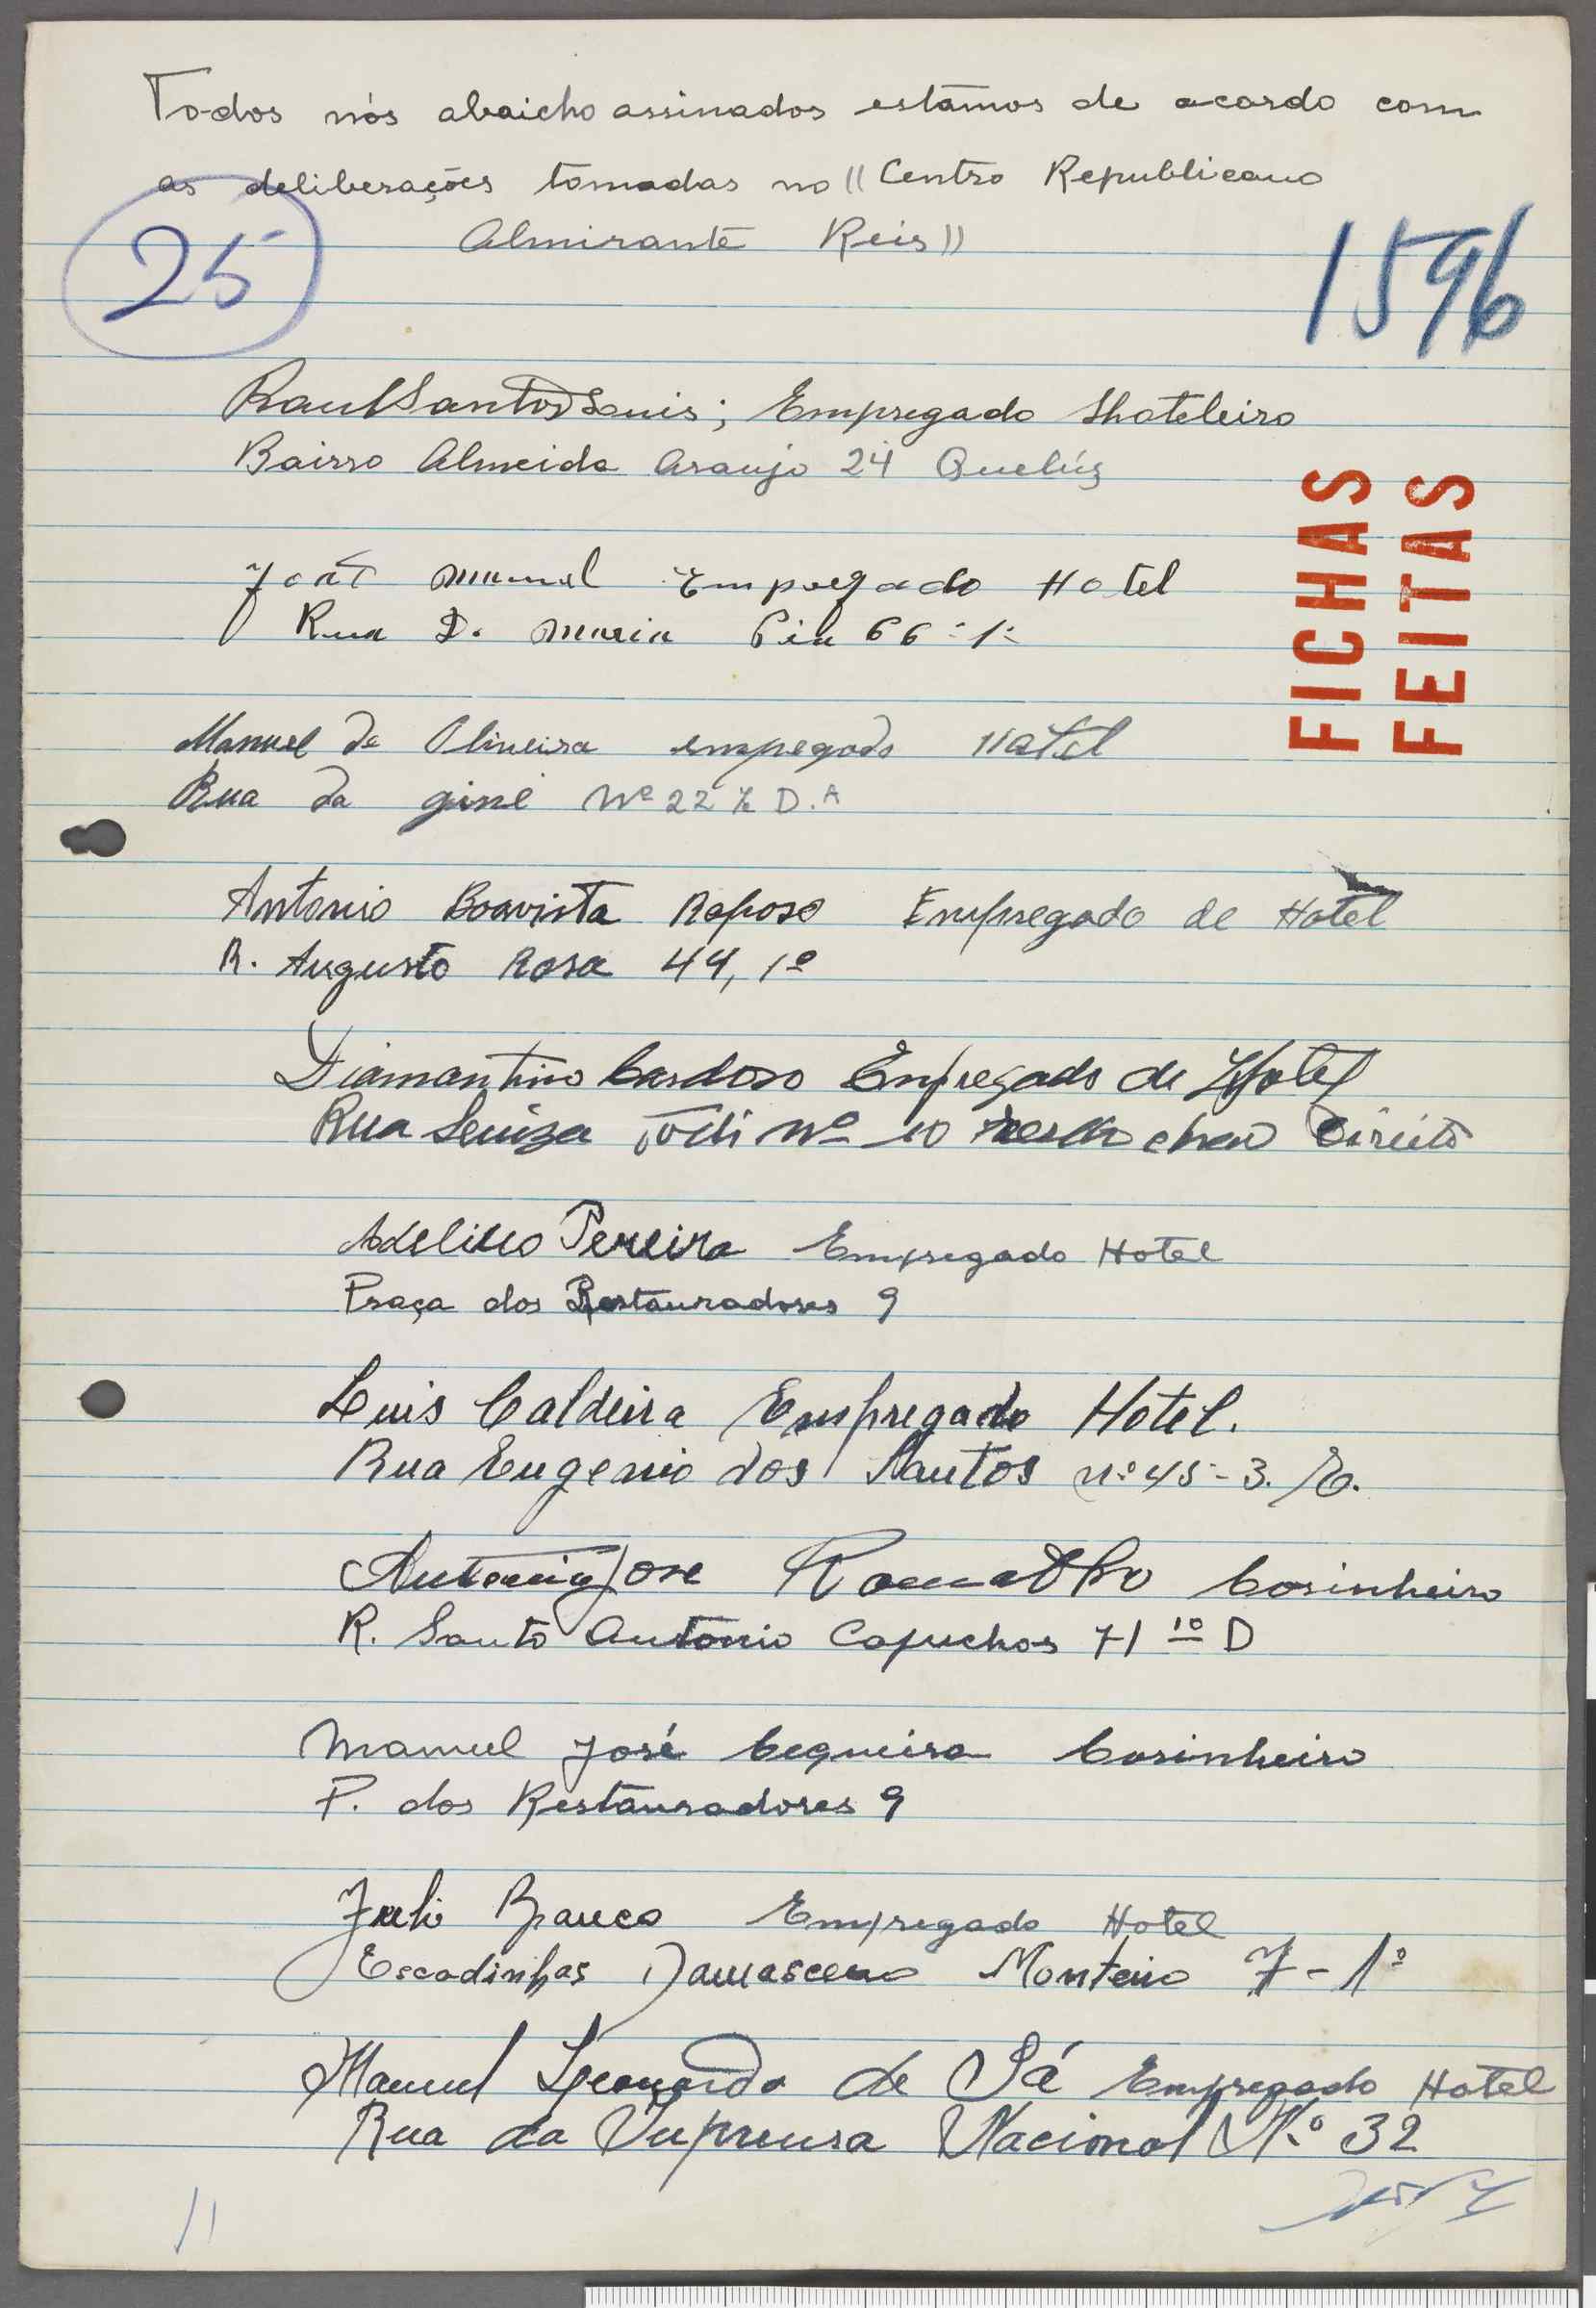 Todos nós abaicho assinados estamos de acordo com
as deliberações tomadas no "Centro Republicano
Almirante Reis"
25
1596
FICHAS
FEITAS
Raul Santos ; Empregado Hoteleiro
Bairro Almeida Araujo 24 Quelúz
Manuel Empregado Hotel
Rua D. Maria Pia 66-1º
Manuel de Oliveira empregado Hotel
Rua da giné Nº 22
Antonio Boavista Raposo Empregado de Hotel
R. Augusto Rosa 44, 1º
Diamantino Cardoso Empregado de Hotel
Rua Luiza Tódi nº 10 chao Direito
Adelino Pereira Empregado Hotel
Praça dos Restauradores 9
Luis Caldeira Empregado Hotel.
Rua Eugenio dos Santos nº 45-3. E.
Antonio Jose Ramalho Cosinheiro
R. Santo Antonio Capuchos 71 1º D
Manuel José Cequeira Cosinheiro
P. dos Restauradores 9
Branco Empregado Hotel
Escadinhas Damasceno Monteiro 7-1º
Manuel Leonardo de Sá Empregado Hotel
Rua da Imprensa Nacional N.º 32
11